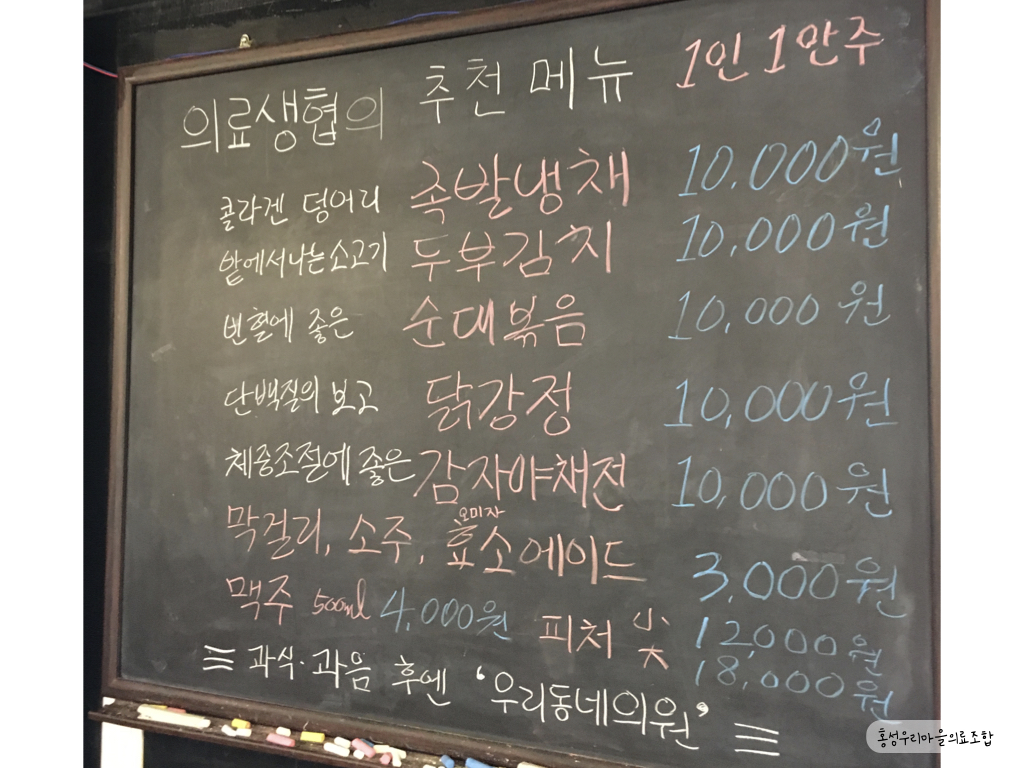 의료생협의 추천 메뉴 1인 1만주
콜라겐 덩어리 족발냉채 10,000원
밭에서나는소고기 두부김치 10,000원
빈혈에 좋은 순대볶음 10,000원
단백질의 보고 닭강정 10,000원
체중조절에 좋은 감자야채전 10,000원
오미자
막걸리, 소주, 효소에이드 3,000원
맥주 500ml 4,000원 피처 小 12,000원
大 18,000원
과식·과음 후엔 '우리동네의원'
홍성우리마을의료조합